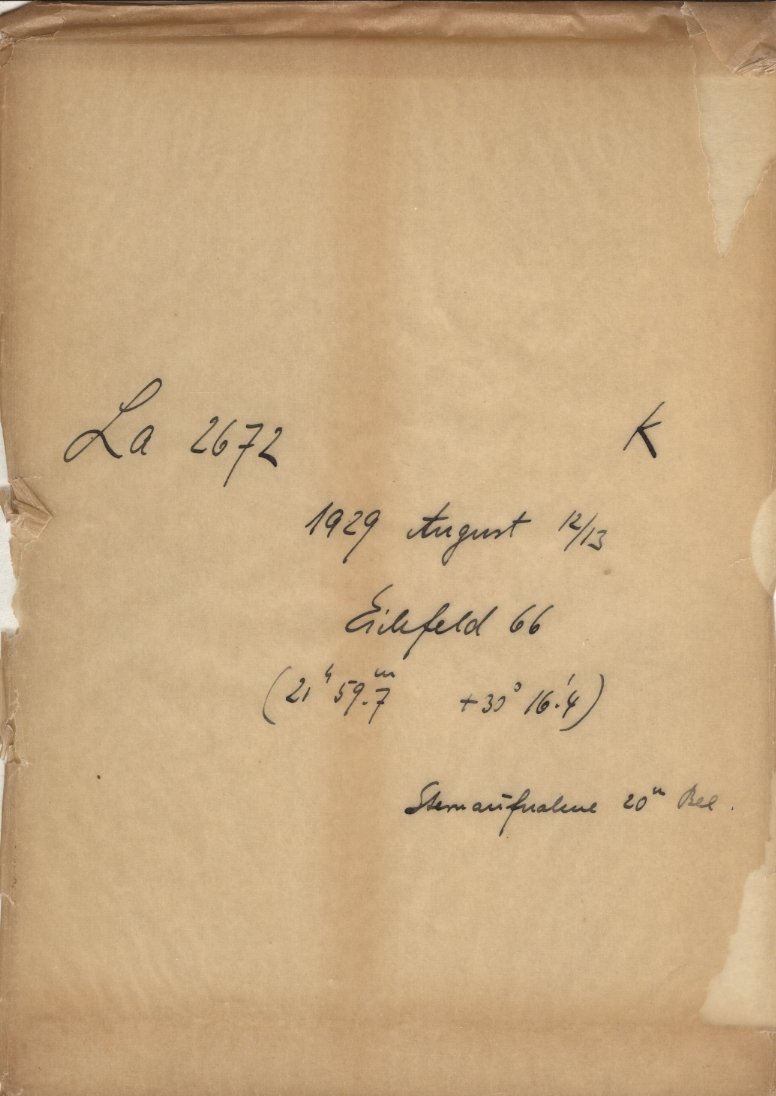 La 2672 K
1929 August 12/13
Eichfeld 66
(21ʰ 59.ᵐ7 +30° 16.'4)
Sternaufnahme 20ᵐ Bel.